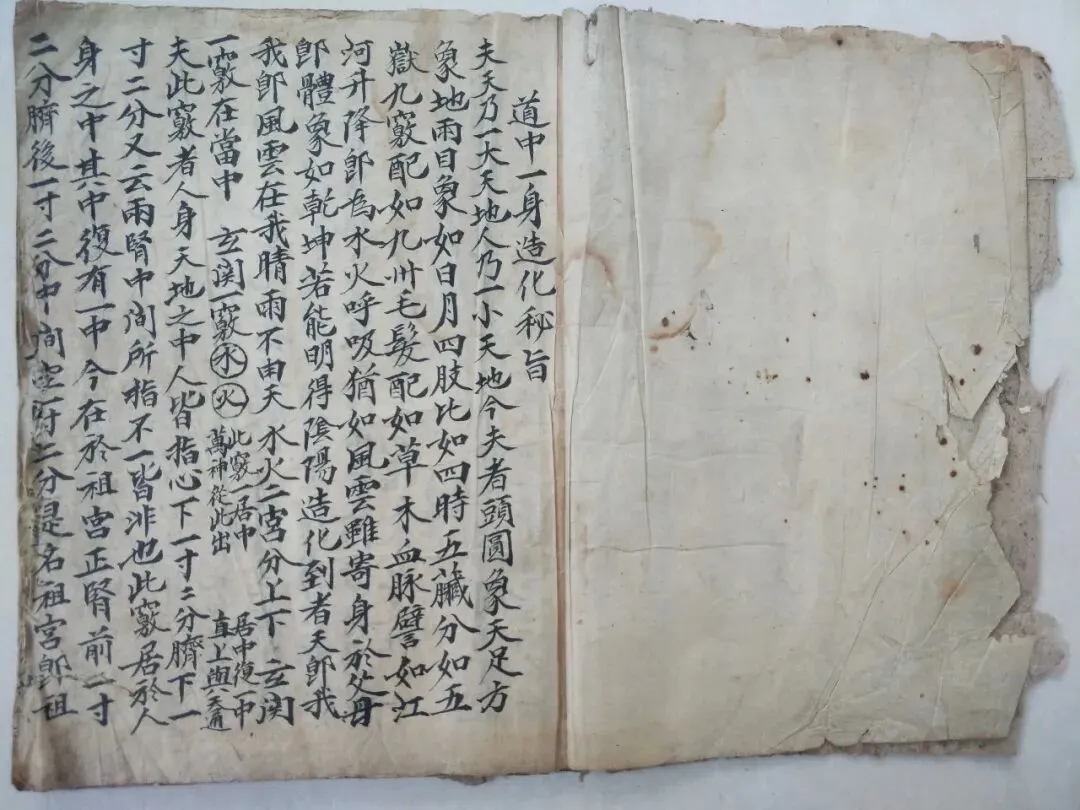 道中一身造化秘旨
夫天乃一大天地人乃一小天地今夫者頭圓象天足方
象地兩目象如日月四肢比如四時五臟分如五
嶽九竅配如九州毛髮配如草木血脉譬如江
河升降即為水火呼吸猶如風雲雖寄身於父母
即體象如乾坤若能明得陰陽造化到者天即我
我即風雲在我晴雨不由天 水火二宮分上下 玄関
一竅在當中 玄関一竅 水 火 此竅居中 居中復一中
萬神從此出 直上與天通
夫此竅者人身天地之中人皆指心下一寸二分臍下一
寸二分又云兩腎中间所指不一皆非也此竅居於人
身之中其中復有一中今在於祖宮正腎前一寸
二分臍後一寸二分中间空一寸二分是名祖宮即祖